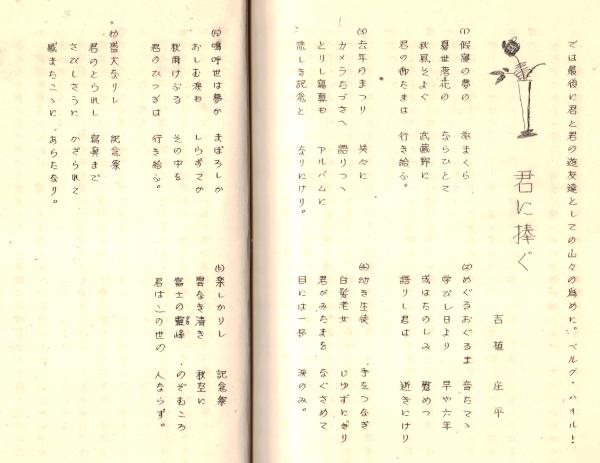 では最後に君と君の遊友達としての山々の爲めに。ベルグ・ハイル！
君に捧ぐ
吉植庄平
(1) 假寢の夢の 旅まくら
夏世落花の ならひとて
秋風そよぐ 武蔵野に
君の御たまは 行き給ふ。
(2) めぐるおぐるま 音たてゝ
学びし日より 早や六年
或はたのしみ 慰めつ
語りし君は 逝きにけり
(3) 去年のまつり 共々に
カメラたづさへ 語りつゝ
とりし寫真も アルバムに
悲しき記念と なりにけり。
(4) 幼き生徒 手をつなぎ
白髪老女 じゆずにぎり
君がみたまを なぐさめて
目には一杯 涙のみ。
(5) 嗚呼世は夢か まぼろしか
おしむ涙も しらぎてか
秋雨けぶる その中を
君のひつぎは 行き給ふ。
(6) 楽しかりし 記念祭
雲なき清き 秋空に
富士の霊峰 のぞむころ
君はこの世の 人ならず。
(7) 盛大なりし 記念祭
君のとられし 寫眞まで
さびしさうに かざられて
歳またこゝに あらたなり。